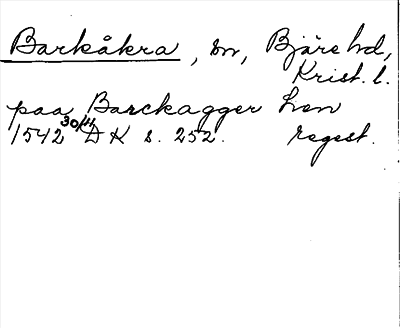 Barkåkra, sn, Bjäre hd,
Krist. l.
paa Barckagger hen
1542 30/11 DK s. 252. regest.